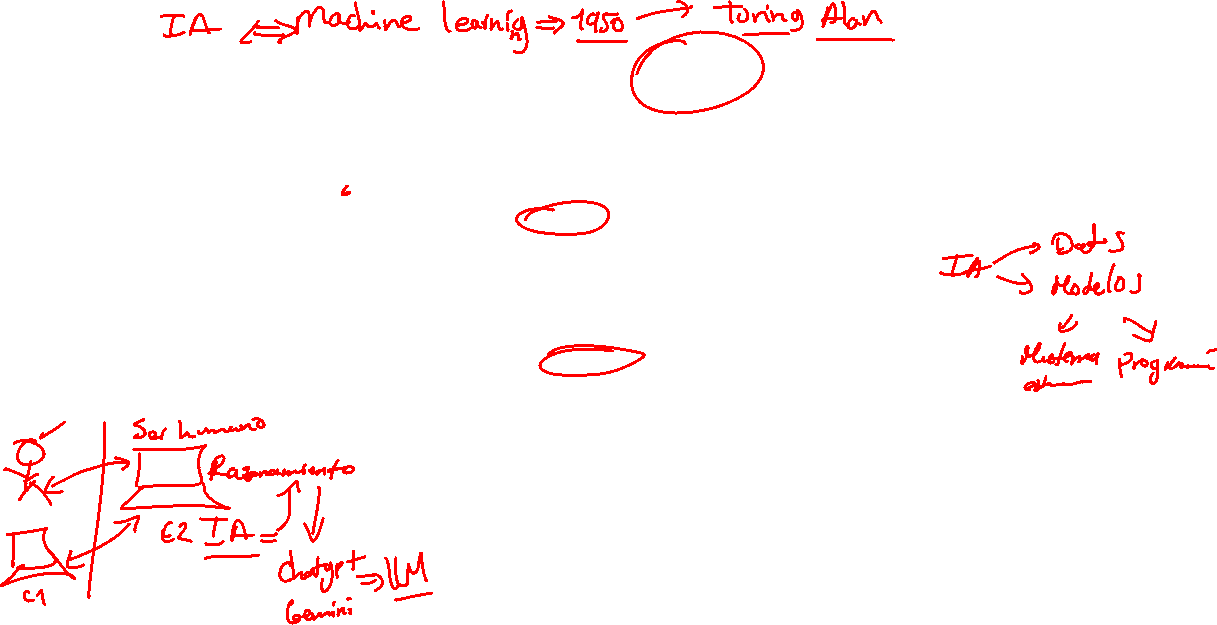 IA ⇔ Machine learnig ⇒ 1950 → Turing Alan
IA → Datos
→ Modelos
Ser humano
Razonamiento
IA =
Chatgpt ⇒ LLM
Gemini
C1